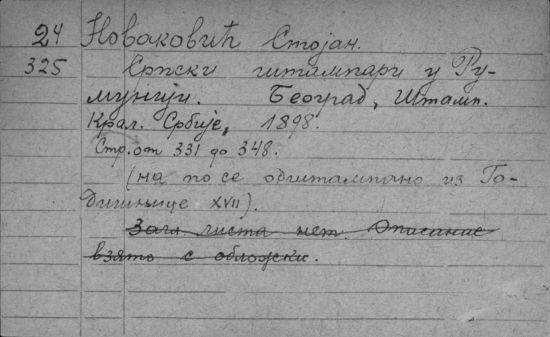 24 Новаковић Стојан.
325 Српски штампари у Ру-
мунији. Београд, Штамп.
Крал. Србије, 1898.
Стр. от 331 до 348.
(на по се одштампано из Го-
дишњице XVII).
Загл. листа нет. Описание
взято с обложки.